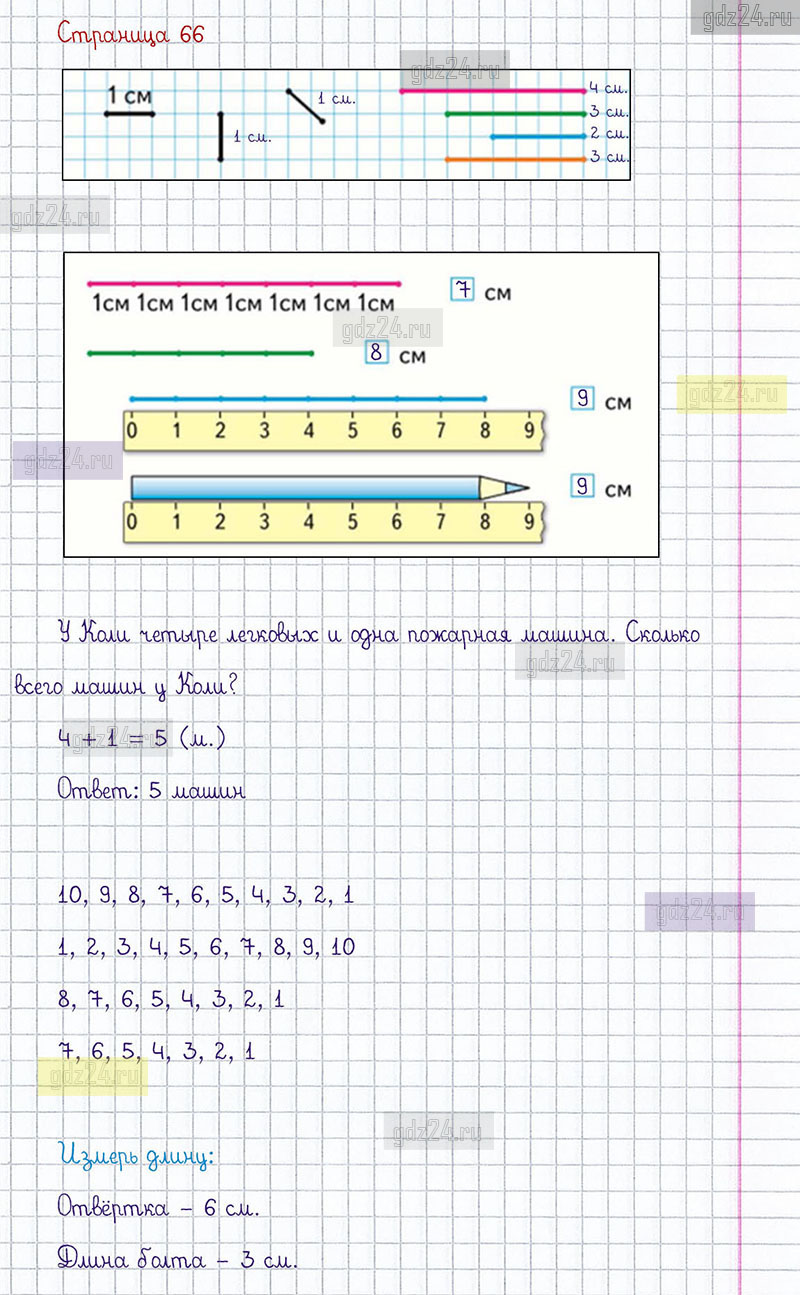 gdz24.ru
Страница 66
gdz24.ru
1 см
1 см.
1 см.
4 см.
3 см.
2 см.
3 см.
gdz24.ru
1см 1см 1см 1см 1см 1см 1см
7 см
gdz24.ru
8 см
gdz24.ru
9 см
0 1 2 3 4 5 6 7 8 9
gdz24.ru
9 см
0 1 2 3 4 5 6 7 8 9
У Коли четыре легковых и одна пожарная машина. Сколько
gdz24.ru
всего машин у Коли?
4 + 1 = 5 (м.)
gdz24.ru
Ответ: 5 машин
10, 9, 8, 7, 6, 5, 4, 3, 2, 1
gdz24.ru
1, 2, 3, 4, 5, 6, 7, 8, 9, 10
8, 7, 6, 5, 4, 3, 2, 1
7, 6, 5, 4, 3, 2, 1
gdz24.ru
gdz24.ru
Измерь длину:
Отвёртка – 6 см.
Длина болта – 3 см.